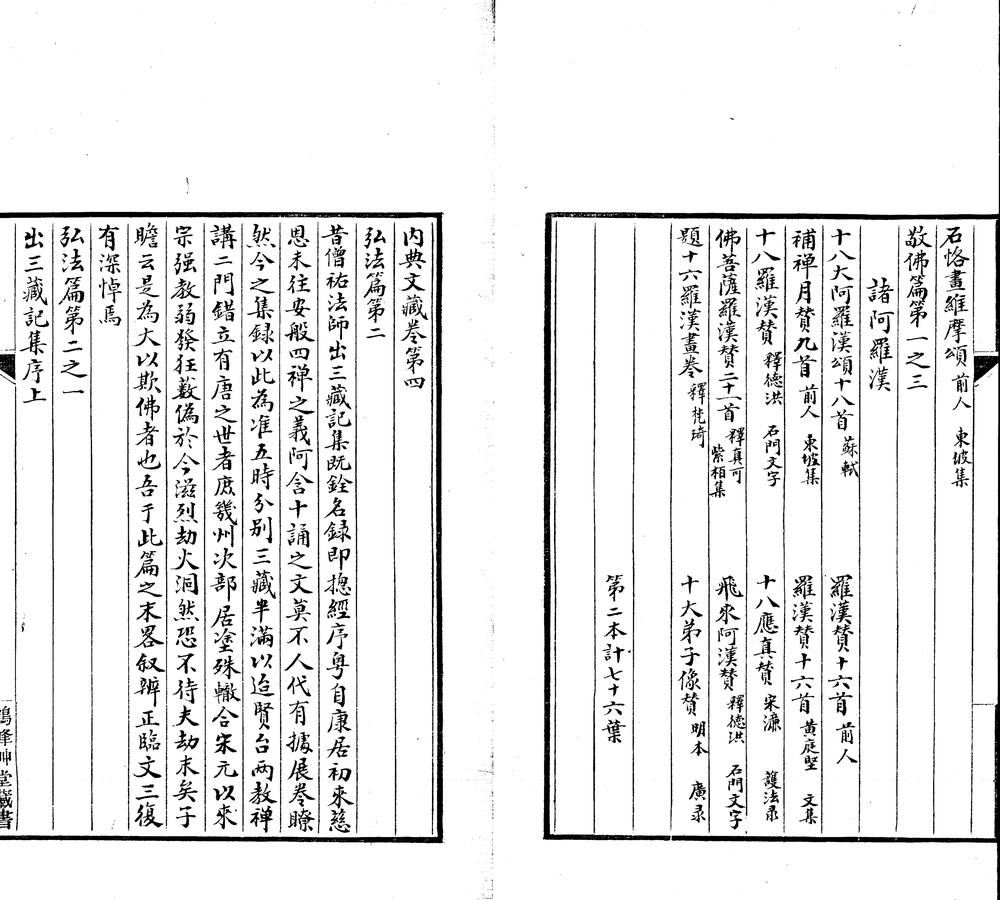 石恪畫維摩頌 前人 東坡集
敬佛篇第一之三
諸阿羅漢
十八大阿羅漢頌十八首 蘇軾 羅漢贊十六首 前人
補禪月贊九首 前人 東坡集 羅漢贊十六首 黃庭堅 文集
十八羅漢贊 釋德洪 石門文字 十八應真贊 宋濂 護法录
佛菩薩羅漢贊二十一首 釋真可 紫栢集 飛來阿漢贊 釋德洪 石門文字
題十六羅漢畫卷 釋梵琦 十大弟子像贊 明本 廣录
第二本計七十六葉
內典文藏卷第四
弘法篇第二
昔僧祐法師出三藏記集既銓名録即摠經序粤自康居初來慈
恩未往安般四禪之義阿含十誦之文莫不人代有據展卷瞭
然今之集録以此為准五時分别三藏半滿以迨賢台两教禪
講二門錯立有唐之世者庶幾州次部居塗殊轍合宋元以來
宗强教弱發狂蔽偽於今滋烈劫火洞然恐不待夫劫末矣于
瞻云是為大以欺佛者也吾于此篇之末畧叙辨正臨文三復
有深悼焉
弘法篇第二之一
出三藏記集序上